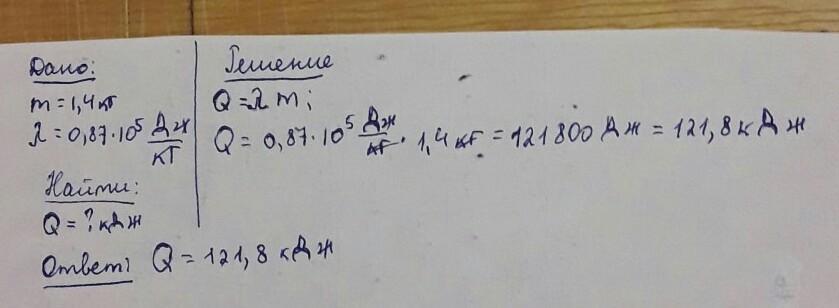 Дано:
m = 1,4 кг
λ = 0,87 · 10⁵ Дж/кг
Найти:
Q = ? кДж
Решение
Q = λ m;
Q = 0,87 · 10⁵ Дж/кг · 1,4 кг = 121800 Дж = 121,8 кДж
Ответ: Q = 121,8 кДж